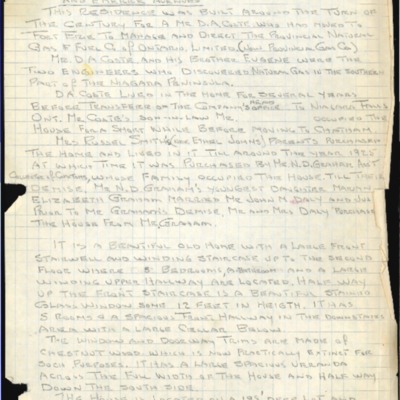 AND EARLIER ADDRESS
THIS RESIDENCE WAS BUILT AROUND THE TURN OF
THE CENTURY FOR A MR. D.A. COSTE WHO HAD MOVED TO
FORT ERIE TO MANAGE AND DIRECT THE PROVINCIAL NATURAL
GAS & FUEL CO OF ONTARIO, LIMITED. (NOW PROVINCIAL GAS CO)
MR. D.A. COSTE AND HIS BROTHER EUGENE WERE THE
TWO ENGINEERS WHO DISCOVERED NATURAL GAS IN THE SOUTHERN
PART OF THE NIAGARA PENINSULA.
D.A. COSTE LIVED IN THE HOME FOR SEVERAL YEARS
BEFORE TRANSFER OF THE COMPANY'S OFFICE TO NIAGARA FALLS
ONT. MR. COSTE'S SON-IN-LAW MR. OCCUPIED THE
HOUSE FOR A SHORT WHILE BEFORE MOVING TO CHATHAM.
MRS RUSSEL SMITH'S (NEE ETHEL JOHNS) PARENTS PURCHASED
THE HOME AND LIVED IN IT TILL AROUND THE YEAR 1925
AT WHICH TIME IT WAS PURCHASED BY MR. N.D. GRAHAM,
COLLECTOR OF CUSTOMS, WHOSE FAMILY OCCUPIED THE HOUSE TILL THEIR
DEMISE. MR. N.D. GRAHAM'S YOUNGEST DAUGHTER MARION
ELIZABETH GRAHAM MARRIED MR JOHN M. DALY AND
PRIOR TO MR GRAHAM'S DEMISE, MR. AND MRS DALY PURCHASED
THE HOUSE FROM MR. GRAHAM.
IT IS A BEAUTIFUL OLD HOME WITH A LARGE FRONT
STAIRWELL AND WINDING STAIRCASE UP TO THE SECOND
FLOOR WHERE 5 BEDROOMS, A BATHROOM AND A LARGE
WINDING UPPER HALLWAY ARE LOCATED. HALF WAY
UP THE FRONT STAIRCASE IS A BEAUTIFUL STAINED
GLASS WINDOW SOME 12 FEET IN HEIGTH. IT HAS
5 ROOMS & A SPACIOUS FRONT HALLWAY IN THE DOWNSTAIRS
AREA WITH A LARGE CELLAR BELOW.
THE WINDOW AND DOORWAY TRIMS ARE MADE OF
CHESTNUT WOOD, WHICH IS NOW PRACTICALLY EXTINCT FOR
SUCH PURPOSES. IT HAS A LARGE SPACIOUS VERANDA
ACROSS THE FULL WIDTH OF THE HOUSE AND HALF WAY
DOWN THE SOUTH SIDE.
THE HOUSE IS LOCATED ON A 125' DEEP LOT AND